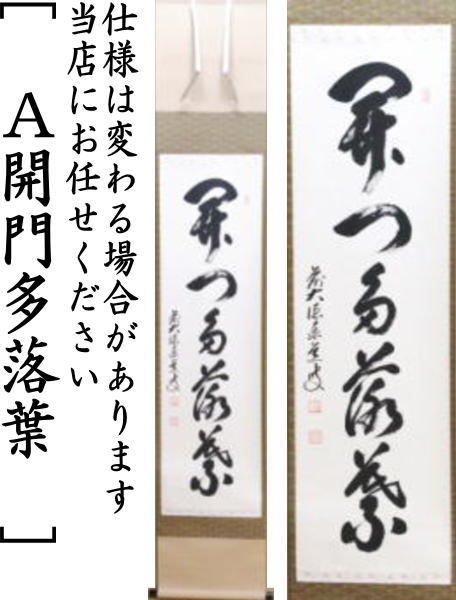 仕様は変わる場合があります
当店にお任せください
［A開門多落葉］
開門多落葉
開門多落葉